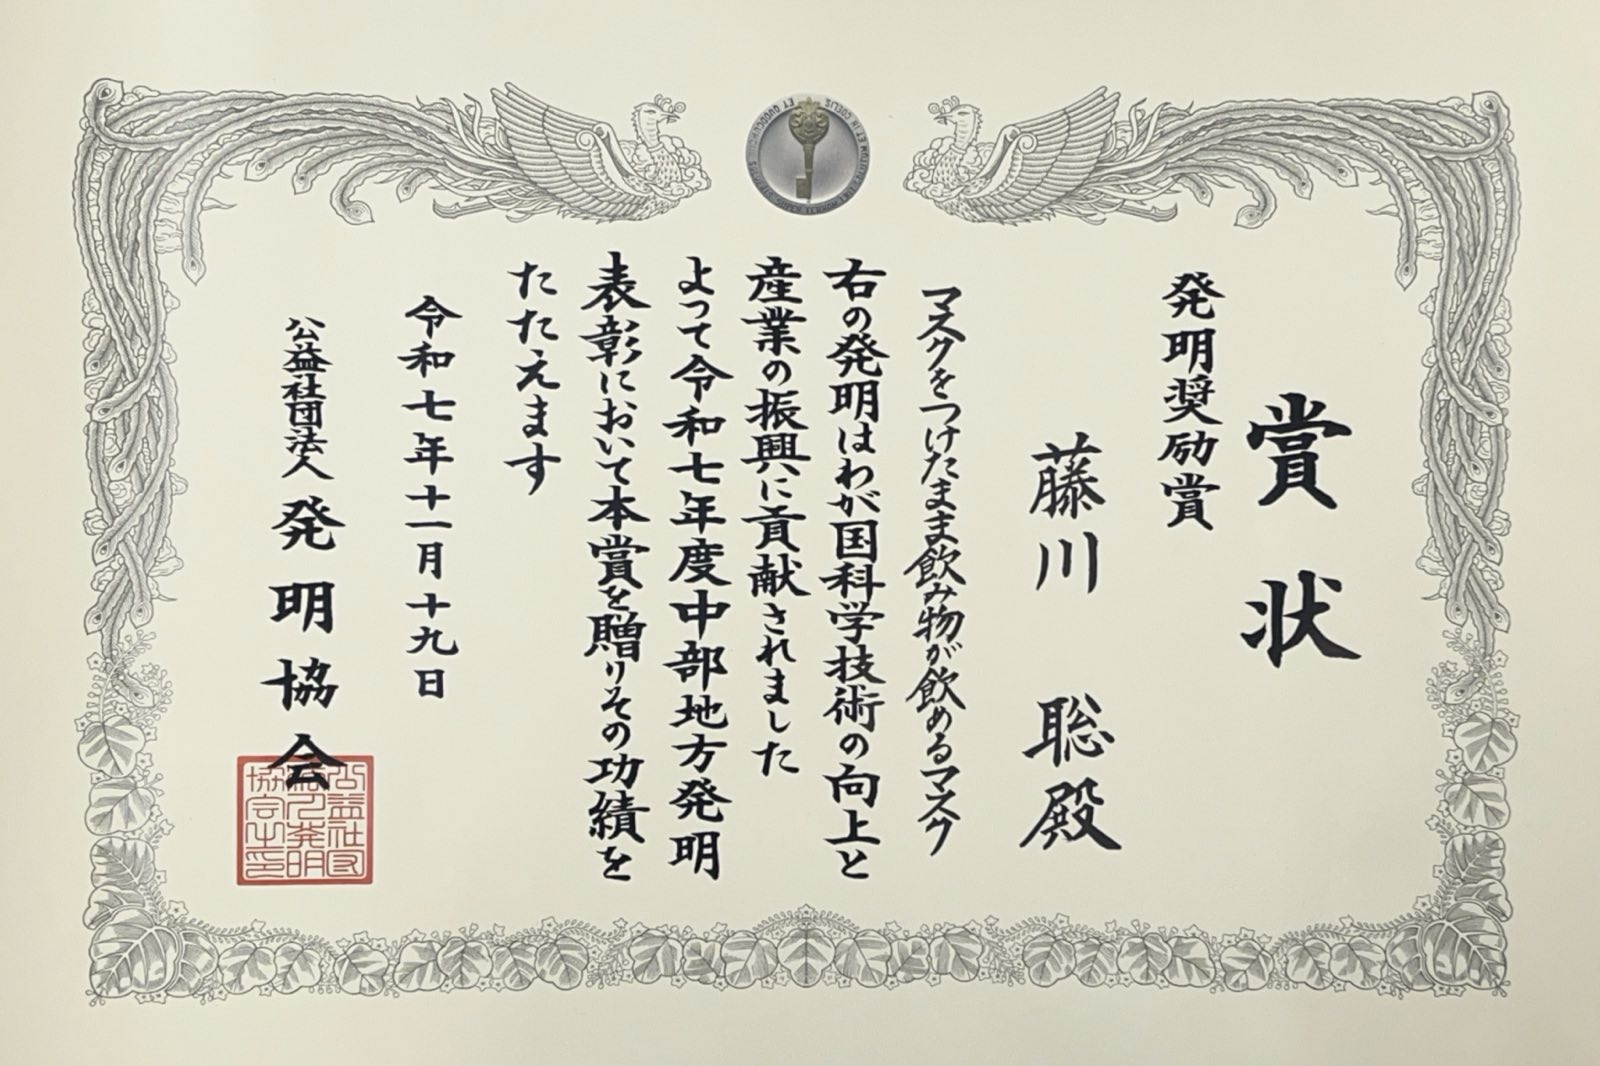 賞状
発明奨励賞
藤川 聡殿
マスクをつけたまま飲み物が飲めるマスク
右の発明はわが国科学技術の向上と
産業の振興に貢献されました
よって令和七年度中部地方発明
表彰において本賞を贈りその功績を
たたえます
令和七年十一月十九日
公益社団法人 発明協会
公益社団
法人発明
協会之印